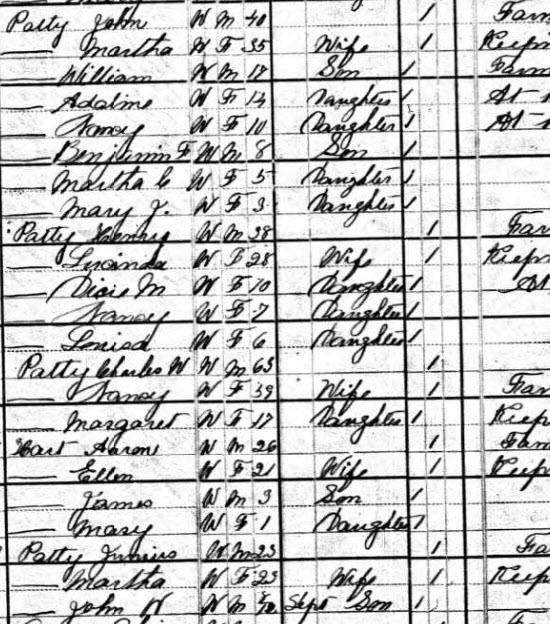 Patty John W M 40 1 Farm
— Martha W F 35 Wife 1 Keepin
— William W M 17 Son 1 Farm
— Adaline W F 14 Daughter 1 At
— Nancy W F 10 Daughter 1 At
— Benjamin F W M 8 Son 1
— Martha C W F 5 Daughter 1
— Mary J. W F 3 Daughter 1
Patty Henry W M 38 1 Far
— Lucinda W F 28 Wife 1 Keepi
— Dicie M W F 10 Daughter 1 At
— Nancy W F 7 Daughter 1
— Louisa W F 6 Daughter 1
Patty Charles W W M 63 1
— Nancy W F 39 Wife 1 Farm
— Margaret W F 17 Daughter 1 Keep
Hart Aaron W M 26 1 Farm
— Ellen W F 21 Wife 1 Keep
— James W M 3 Son 1
— Mary W F 1 Daughter 1
Patty Junius W M 23 1 Fa
— Martha W F 23 Wife 1 Keep
— John W W M Sept Son 1